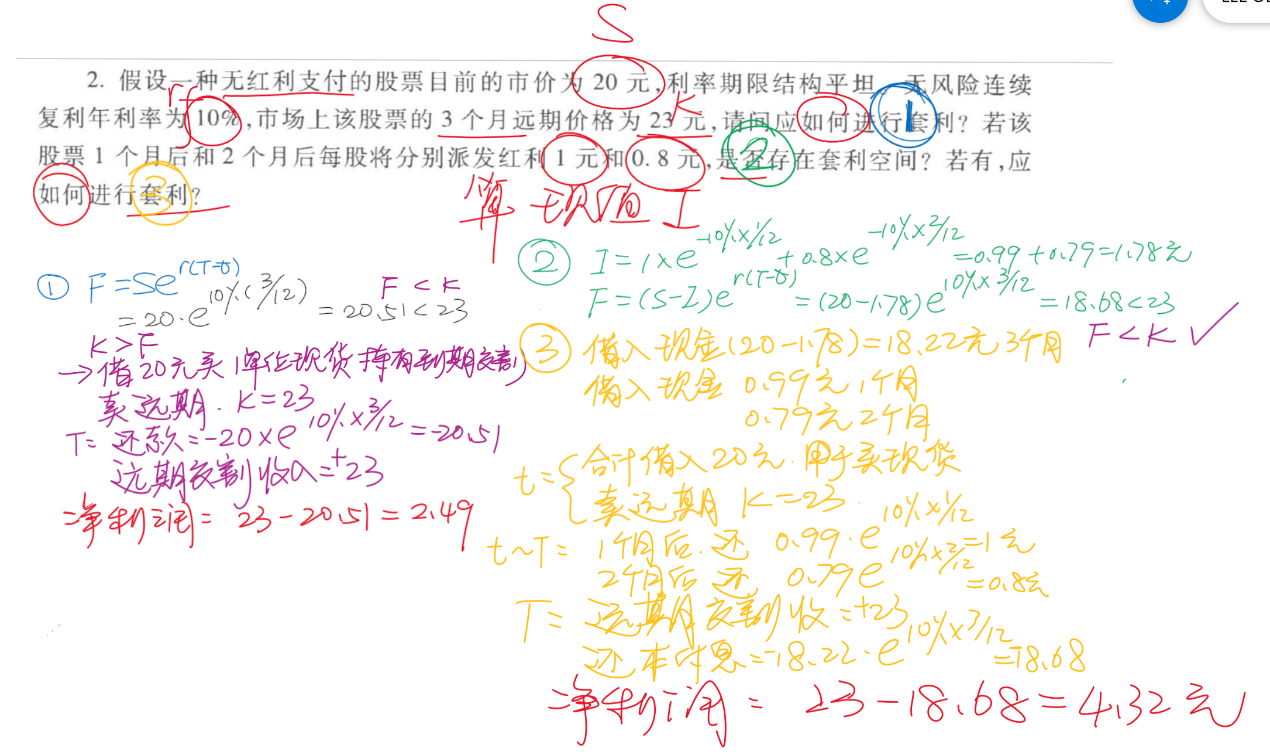 S
2. 假设一种无红利支付的股票目前的市价为 20 元,利率期限结构平坦。无风险连续
rf
K
1
复利年利率为 10%,市场上该股票的 3 个月远期价格为 23 元,请问应如何进行套利? 若该
2
股票 1 个月后和 2 个月后每股将分别派发红利 1 元和 0.8 元,是否存在套利空间? 若有,应
3
如何进行套利?
算 现值 I
① F=Se^{r(T-t)}
=20·e^{10%(3/12)} =20.51<23
F<K
K>F
→借20元买1单位现货 持有到期交割
卖远期. K=23
T= 还款=-20×e^{10%×3/12}=-20.51
远期交割收入=+23
净利润= 23-20.51=2.49
② I=1×e^{-10%×1/12}+0.8×e^{-10%×2/12}=0.99+0.79=1.78元
F=(S-I)e^{r(T-t)}=(20-1.78)e^{10%×3/12}=18.68<23
F<K ✓
③ 借入现金(20-1.78)=18.22元3个月
借入现金 0.99元1个月
0.79元2个月
t={合计借入20元.用于买现货
卖远期 K=23.
t~T= 1个月后.还 0.99·e^{10%×1/12}=1元
2个月后还 0.79e^{10%×2/12}=0.8元
T= 远期交割收=+23
还本付息=-18.22·e^{10%×3/12}=-18.68
净利润= 23-18.68=4.32元